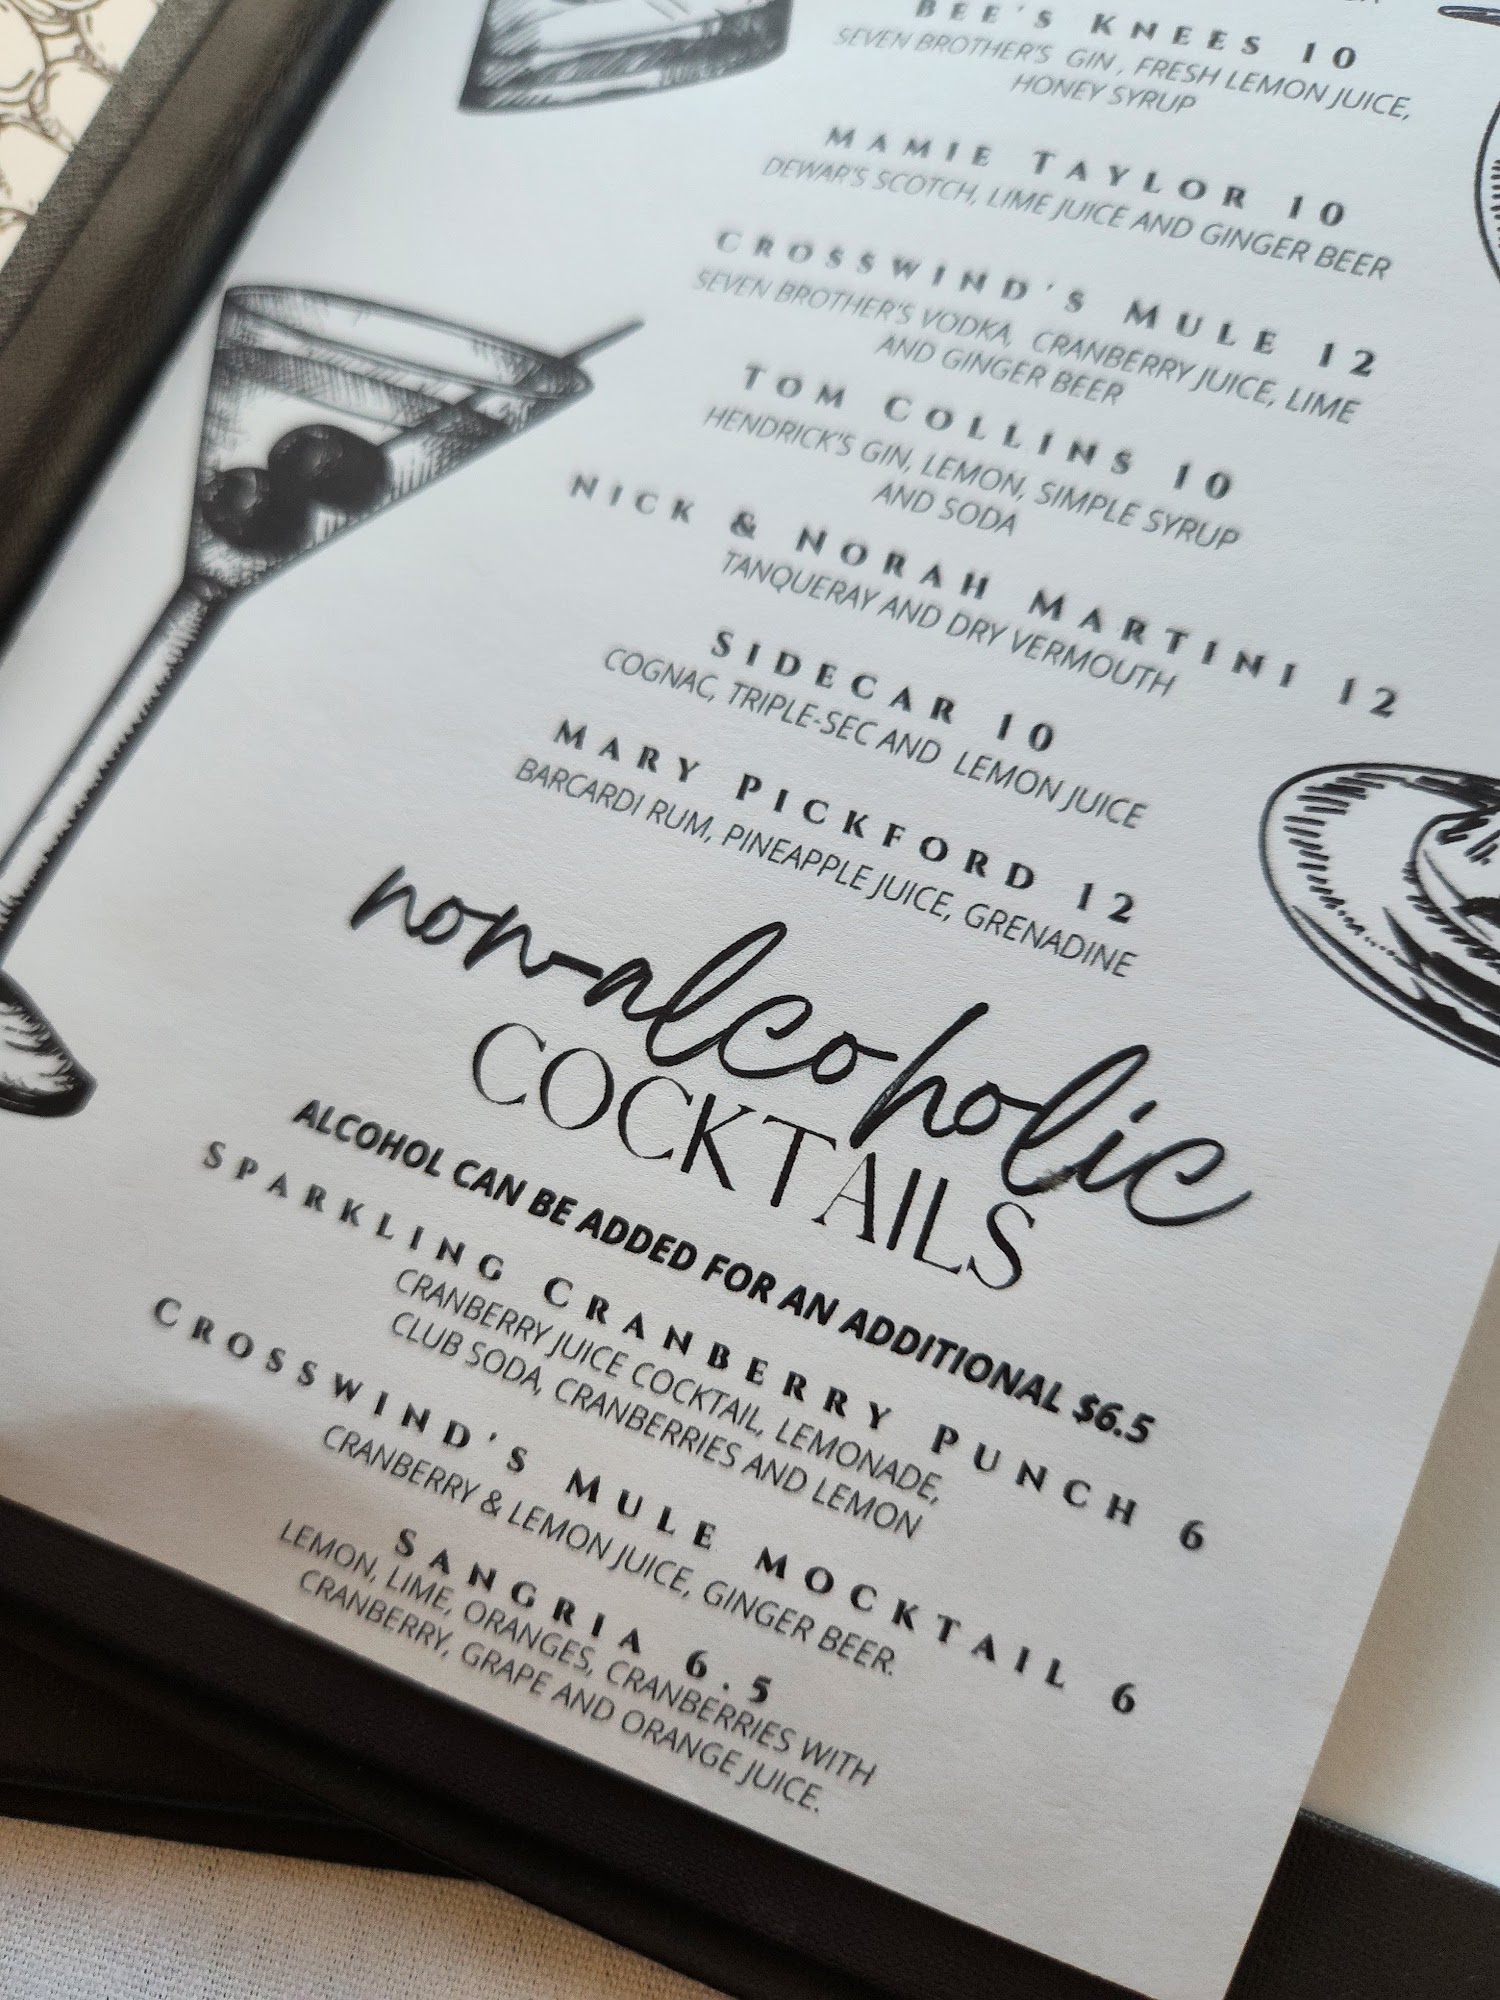 BEE'S KNEES 10
SEVEN BROTHER'S GIN, FRESH LEMON JUICE,
HONEY SYRUP
MAMIE TAYLOR 10
DEWAR'S SCOTCH, LIME JUICE AND GINGER BEER
CROSSWIND'S MULE 12
SEVEN BROTHER'S VODKA, CRANBERRY JUICE, LIME
AND GINGER BEER
TOM COLLINS 10
HENDRICK'S GIN, LEMON, SIMPLE SYRUP
AND SODA
NICK & NORAH MARTINI 12
TANQUERAY AND DRY VERMOUTH
SIDECAR 10
COGNAC, TRIPLE-SEC AND LEMON JUICE
MARY PICKFORD 12
BARCARDI RUM, PINEAPPLE JUICE, GRENADINE
non-alcoholic
COCKTAILS
ALCOHOL CAN BE ADDED FOR AN ADDITIONAL $6.5
SPARKLING CRANBERRY PUNCH 6
CRANBERRY JUICE COCKTAIL, LEMONADE,
CLUB SODA, CRANBERRIES AND LEMON
CROSSWIND'S MULE MOCKTAIL 6
CRANBERRY & LEMON JUICE, GINGER BEER.
SANGRIA 6.5
LEMON, LIME, ORANGES, CRANBERRIES WITH
CRANBERRY, GRAPE AND ORANGE JUICE.